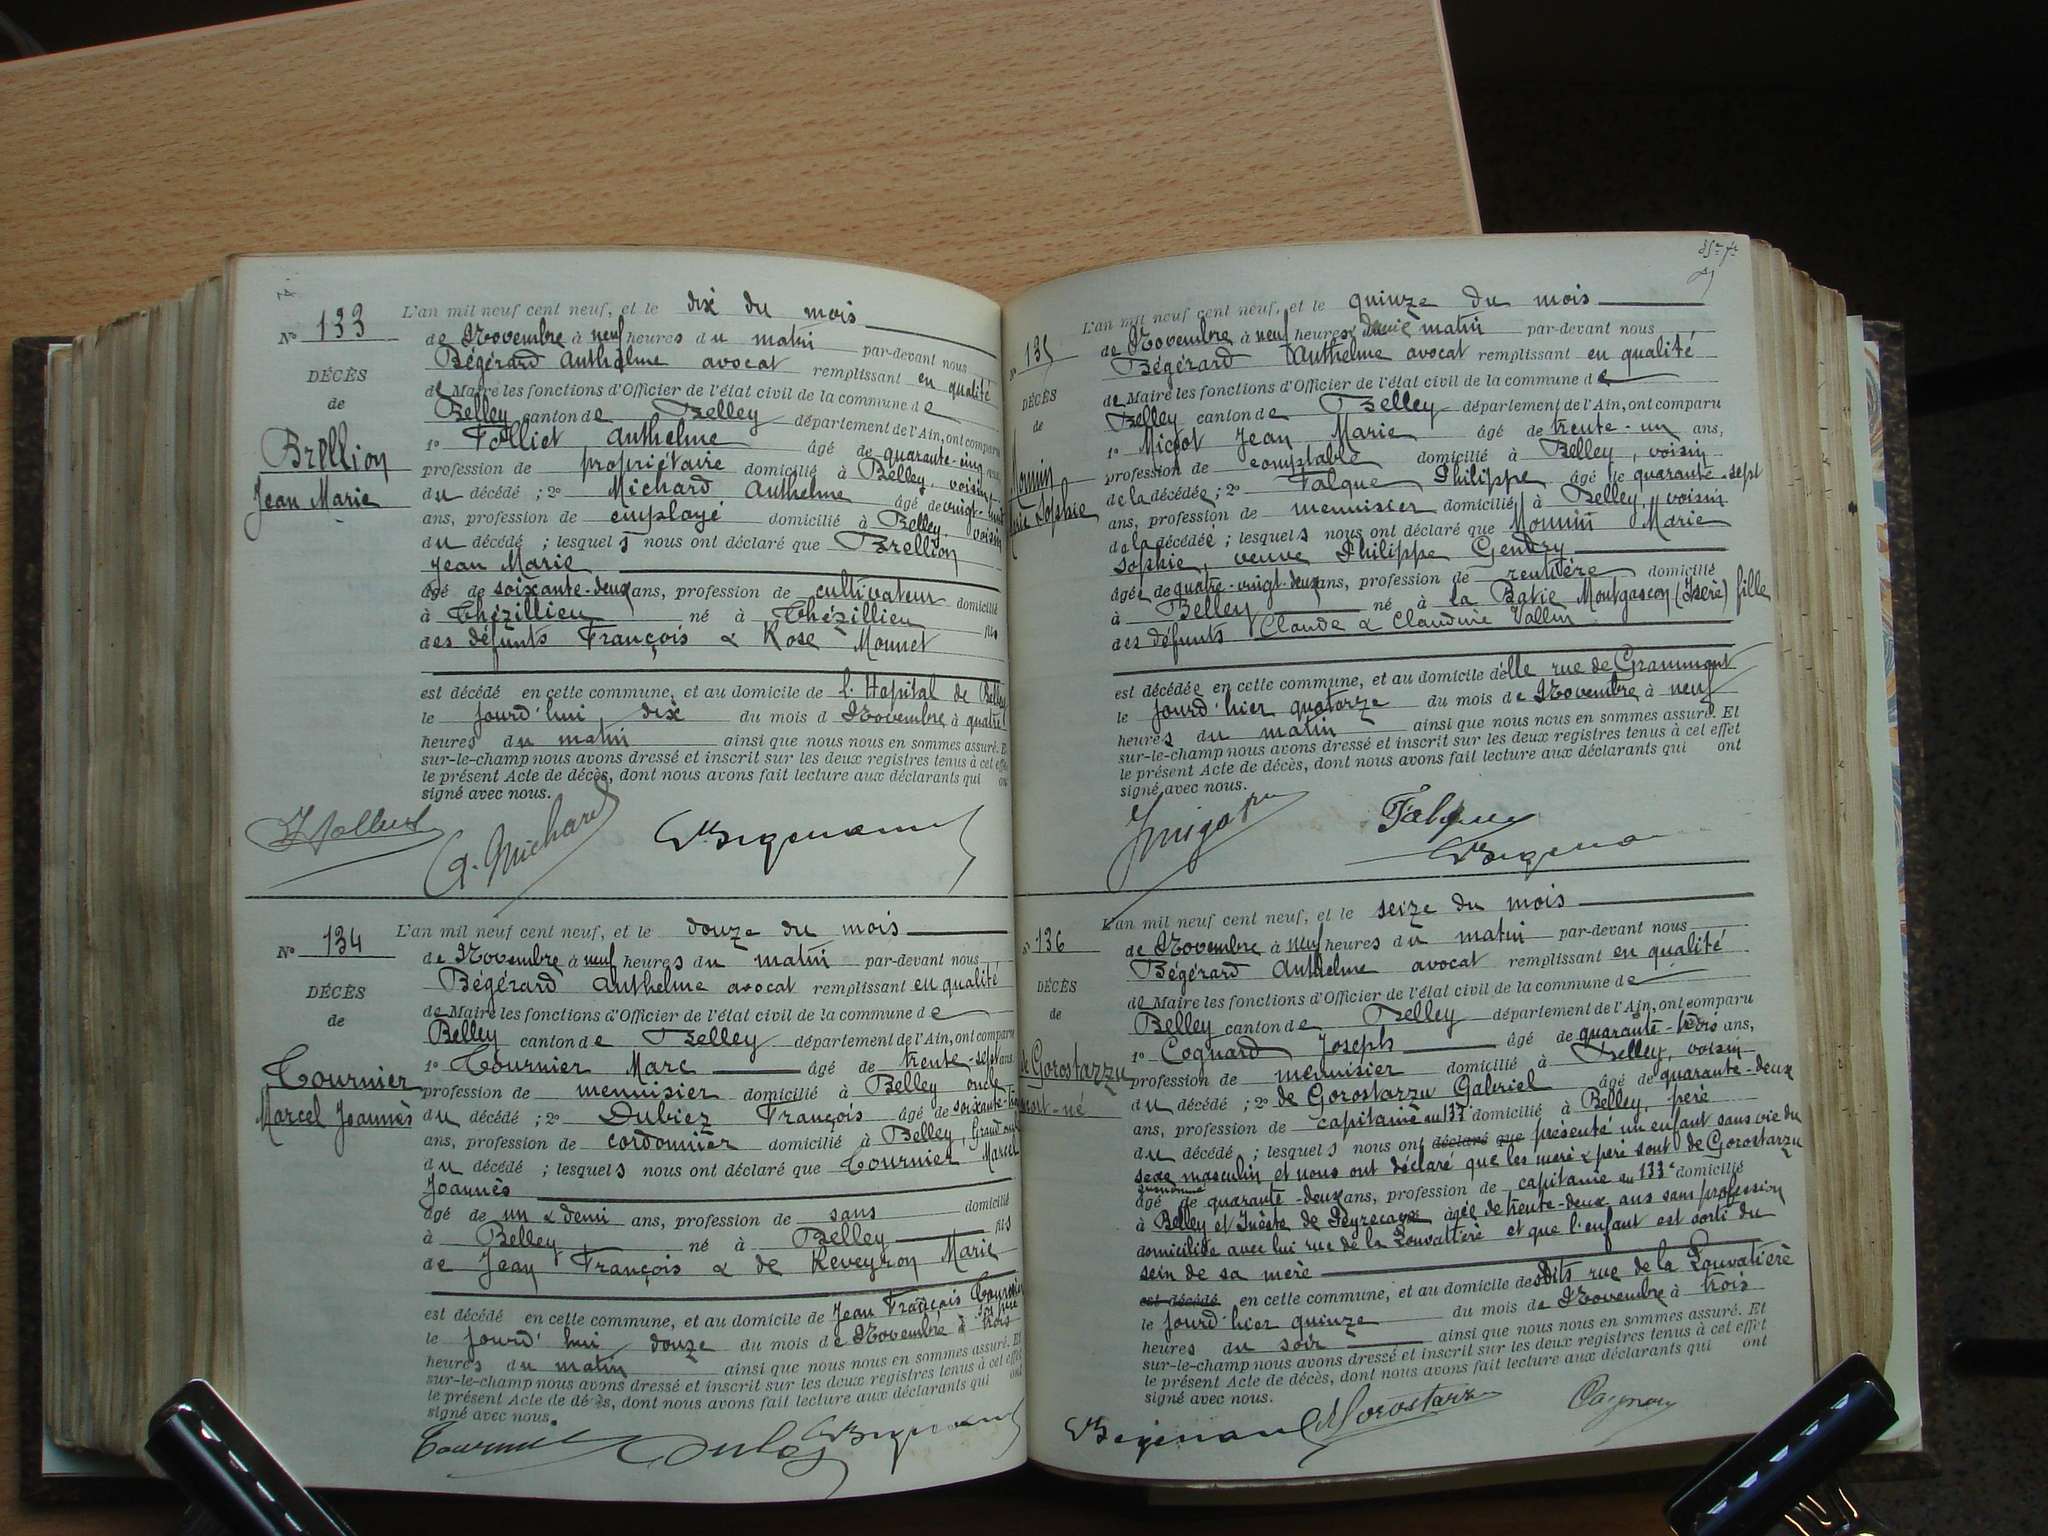 N° 133
DÉCÈS
de
Brellion
Jean Marie
L'an mil neuf cent neuf, et le dix du mois
de Novembre à neuf heures du matin par-devant nous
Bégérard Anthelme avocat remplissant en qualité
de Maire les fonctions d'Officier de l'état civil de la commune de
Belley canton de Belley département de l'Ain, ont comparu
1° Folliet Anthelme âgé de quarante-cinq ans,
profession de propriétaire domicilié à Belley, voisin
du décédé ; 2° Michard Anthelme âgé de vingt-huit
ans, profession de employé domicilié à Belley, voisin
du décédé ; lesquels nous ont déclaré que Brellion
Jean Marie
âgé de soixante-deux ans, profession de cultivateur domicilié
à Thézillieu né à Thézillieu fils
des défunts François & Rose Monnet
est décédé en cette commune, et au domicile de l'Hopital de Belley
le jourd'hui dix du mois d Novembre à quatre
heures du matin ainsi que nous nous en sommes assuré. Et
sur-le-champ nous avons dressé et inscrit sur les deux registres tenus à cet effet
le présent Acte de décès, dont nous avons fait lecture aux déclarants qui ont
signé avec nous.
A. Michard
N° 134
DÉCÈS
de
Tournier
Marcel Joannès
L'an mil neuf cent neuf, et le douze du mois
de Novembre à neuf heures du matin par-devant nous
Bégérard Anthelme avocat remplissant en qualité
de Maire les fonctions d'Officier de l'état civil de la commune de
Belley canton de Belley département de l'Ain, ont comparu
1° Tournier Marc âgé de trente-sept ans
profession de menuisier domicilié à Belley oncle
du décédé ; 2° Dubiez François âgé de soixante-
ans, profession de cordonnier domicilié à Belley, Grand oncle
du décédé ; lesquels nous ont déclaré que Tournier Marcel
Joannès
âgé de un & demi ans, profession de sans domicilié
à Belley né à Belley fils
de Jean François & de Reveyron Marie
est décédé en cette commune, et au domicile de Jean François Tournier
son père
le jourd'hui douze du mois de Novembre à trois
heures du matin ainsi que nous nous en sommes assuré. Et
sur-le-champ nous avons dressé et inscrit sur les deux registres tenus à cet effet
le présent Acte de décès, dont nous avons fait lecture aux déclarants qui ont
signé avec nous.
Tournier
N° 135
DÉCÈS
de
Monnin
Marie Sophie
L'an mil neuf cent neuf, et le quinze du mois
de Novembre à neuf heures & demie matin par-devant nous
Bégérard Anthelme avocat remplissant en qualité
de Maire les fonctions d'Officier de l'état civil de la commune de
Belley canton de Belley département de l'Ain, ont comparu
1° Migot Jean Marie âgé de trente-un ans,
profession de comptable domicilié à Belley, voisin
de la décédée ; 2° Falque Philippe âgé de quarante-sept
ans, profession de menuisier domicilié à Belley, voisin
de la décédée ; lesquels nous ont déclaré que Monnin Marie
Sophie, veuve Philippe Gendry
âgée de quatre-vingt-deux ans, profession de rentière domicilié
à Belley né à la Batie Montgascon (Isère) fille
des défunts Claude & Claudine Vallin
est décédée en cette commune, et au domicile d'elle rue de Grammont
le jourd'hier quatorze du mois de Novembre à neuf
heures du matin ainsi que nous nous en sommes assuré. Et
sur-le-champ nous avons dressé et inscrit sur les deux registres tenus à cet effet
le présent Acte de décès, dont nous avons fait lecture aux déclarants qui ont
signé avec nous.
Falque
N° 136
DÉCÈS
de
de Gorostarzu
mort-né
L'an mil neuf cent neuf, et le seize du mois
de Novembre à neuf heures du matin par-devant nous
Bégérard Anthelme avocat remplissant en qualité
de Maire les fonctions d'Officier de l'état civil de la commune de
Belley canton de Belley département de l'Ain, ont comparu
1° Cognard Joseph âgé de quarante-trois ans,
profession de menuisier domicilié à Belley, voisin
du décédé ; 2° de Gorostarzu Gabriel âgé de quarante-deux
ans, profession de capitaine au 133 domicilié à Belley, père
du décédé ; lesquels nous ont déclaré que présenté un enfant sans vie du
sexe masculin et nous ont déclaré que les mère & père sont de Gorostarzu
âgé de quarante-deux ans, profession de capitaine au 133e domicilié
à Belley et de âgée de trente-deux ans sans profession
domiciliée avec lui rue de la Louvatière et que l'enfant est sorti du
sein de sa mère
est décédé en cette commune, et au domicile desdits rue de la Louvatière
le jourd'hier quinze du mois de Novembre à trois
heures du soir ainsi que nous nous en sommes assuré. Et
sur-le-champ nous avons dressé et inscrit sur les deux registres tenus à cet effet
le présent Acte de décès, dont nous avons fait lecture aux déclarants qui ont
signé avec nous.
Gorostarzu